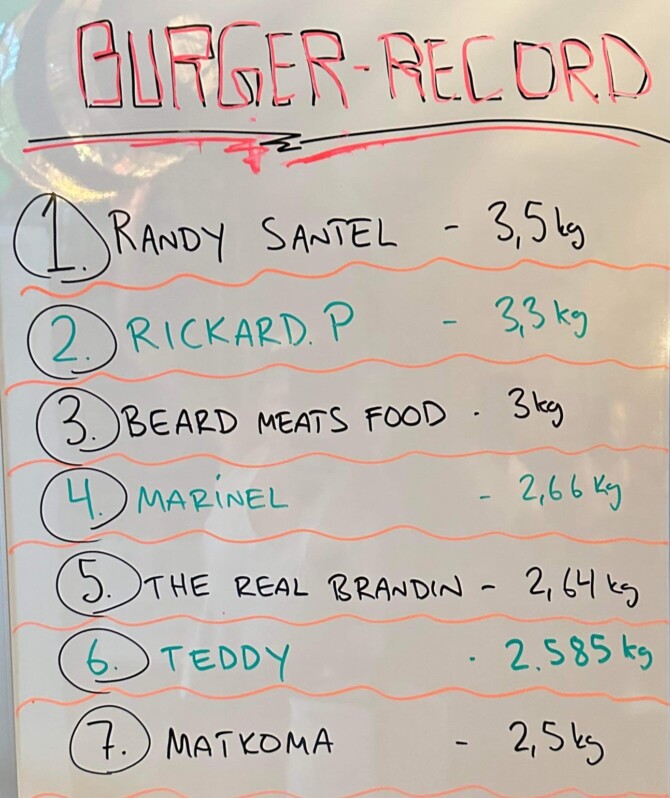 BURGER-RECORD
1. RANDY SANTEL - 3,5 kg
2. RICKARD. P - 3,3 kg
3. BEARD MEATS FOOD . 3 kg
4. MARINEL - 2,66 kg
5. THE REAL BRANDIN - 2,64 kg
6. TEDDY . 2.585 kg
7. MATKOMA - 2,5 kg